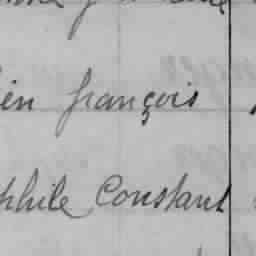 ien françois
phile Constant